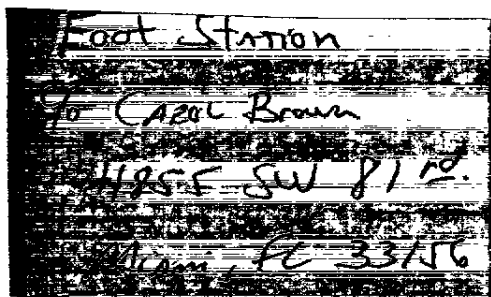 Foot Station
c/o Carol Brown
4855 SW 81 rd.
Miami, FL 33156